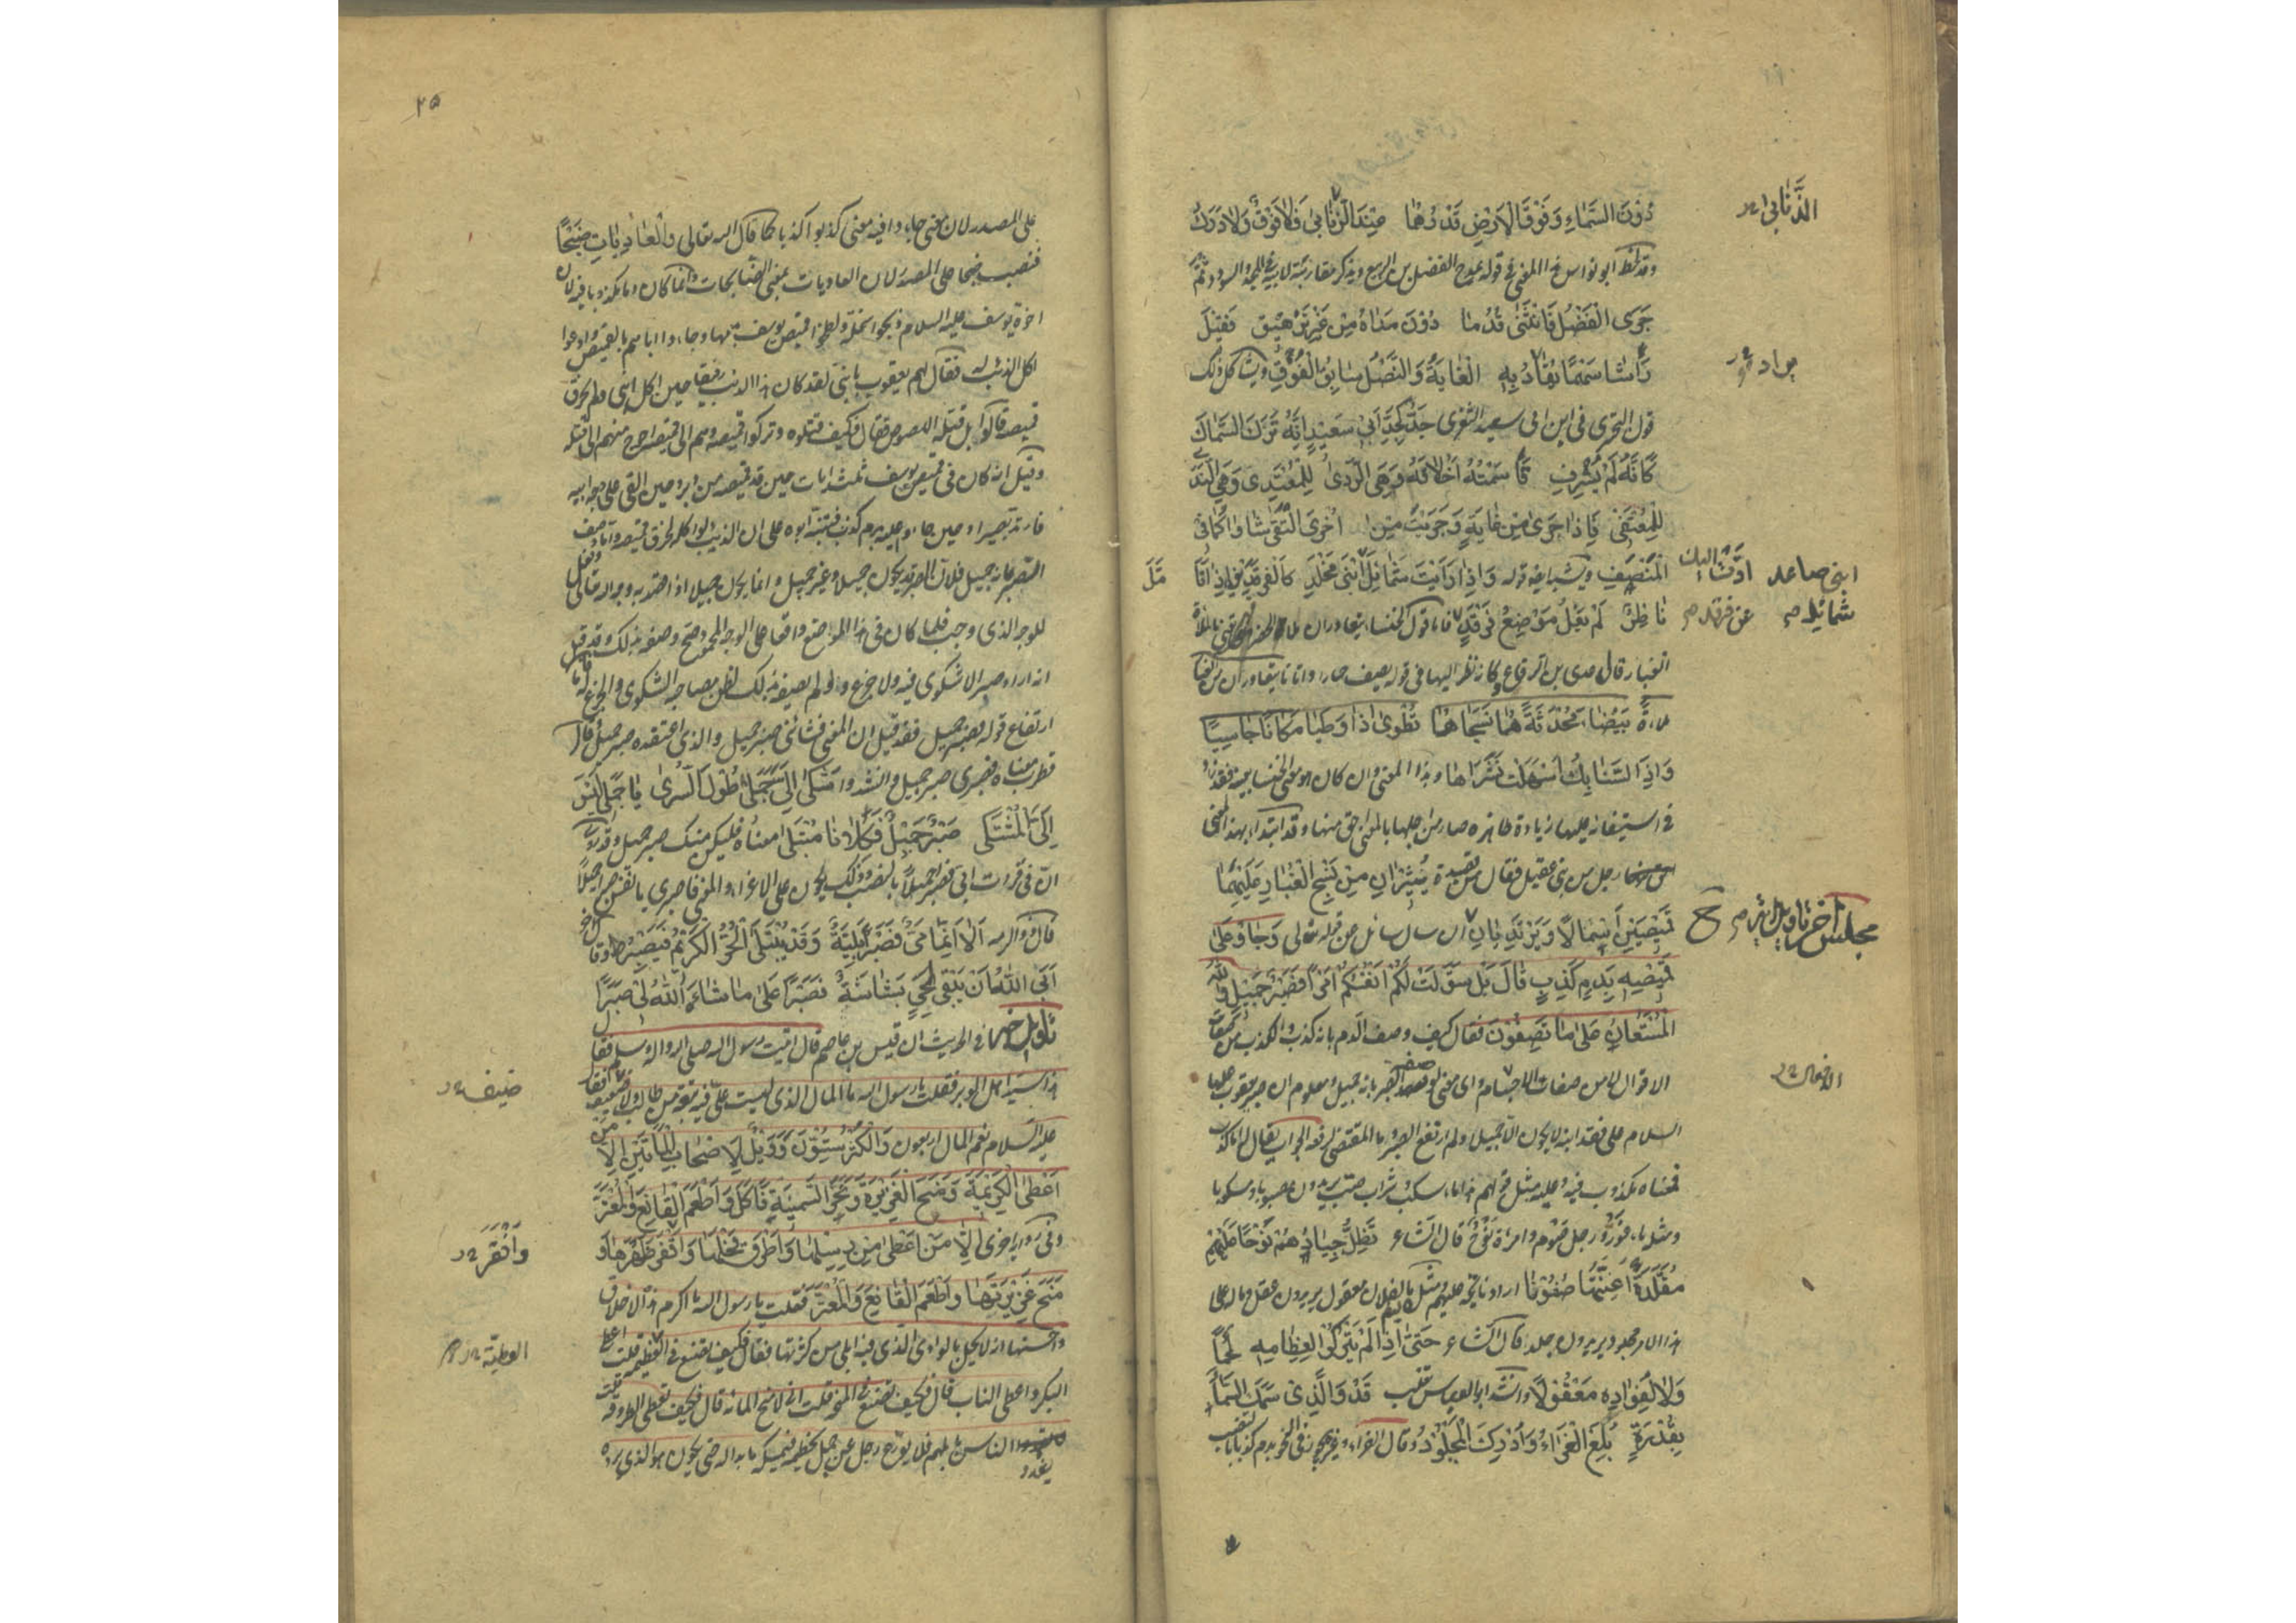 دُوْنَ السَّمَاءِ وَفَوْقَ الْاَرْضِ قَدْرُهُمَا عِنْدَ الذُّنَابىٰ فَلَا فَوْقٌ وَلَا دَرَكُ
الذُّنَابىٰ
وقد لحظ ابو نواس هذا المعنى فى قوله يمدح الفضل بن الربيع ويذكر مقاربته لابيه فى المجد والسودد ثم
جَرَى الْفَضْلُ فَانْثَنىٰ قُدُمًا دُوْنَ مَدَاهُ مِنْ غَيْرِ تَرْهِيْقٍ فَقِيْلَ
رَاشَا سَهْمًا يُقَادُ بِهِ الْغَايَةُ وَالنَّصْلُ سَابِقُ الْفُوْقِ ويشاكل ذلك
يراد
قول البحترى فى ابن ابى سعيد الثغرى جَدٌّ كَجَدِّ اَبِىْ سَعِيْدٍ اِنَّهُ تَرَكَ السِّمَاكَ
كَاَنَّهُ لَمْ يَشْرُفِ قَاسَمْتُهُ اَخْلَاقَهُ وَهِىَ الرَّدىٰ لِلْمُعْتَدِىْ وَهِىَ النَّدىٰ
لِلْمُعْتَفِىْ فَاِذَا جَرىٰ مِنْ غَايَةٍ وَجَرَيْتَ مِنْ اُخْرىٰ الْتَقىٰ شَاوَاكُمَا فِى
الْمَنْصَفِ ويشبه ايضا قوله وَاِذَا رَاَيْتَ شَمَائِلَ ابْنَىْ مَخْلَدِ كَالْفَرْقَدَيْنِ اِذَا تَاَمَّلَ
ابنى صاعد ادّت اليك
نَاظِرٌ لَمْ يَعْلُ مَوْضِعُ فَرْقَدٍ فاما قول الخنساء يتعاوران
شمائله عن فرقد
الغبار قال عدى بن الرقاع وكانه نظر اليها فى قوله يصف حمارا واتانا يتعاوران من الغبار
ملاءةً بَيْضَاءَ مُحْدَثَةً هُمَا نَسَجَاهَا تُطْوىٰ اِذَا وَطِيَا مَكَانًا جَاسِيًا
وَاِذَا السَّنَابِكُ اَسْهَلَتْ نَشَرَاهَا وهذا المعنى وان كان هو معنى الخنساء بعينه فقد زاد
فى استيفائه عليها زيادة ظاهرة صار من اجلها بالمعنى احق منها وقد ابتداء بهذا المعنى
رجل من بنى عقيل فقال من قصيدة يُثِيْرَانِ مِنْ نَسْجِ الْغُبَارِ عَلَيْهِمَا
قَمِيْصَيْنِ اَسْمَالًا وَيَرْتَدِيَانِ ان سال سائل عن قوله تعالى وَجَاؤُ عَلىٰ
مجلس اخر تاويل اية
قَمِيْصِهِ بِدَمٍ كَذِبٍ قَالَ بَلْ سَوَّلَتْ لَكُمْ اَنْفُسُكُمْ اَمْرًا فَصَبْرٌ جَمِيْلٌ وَاللهُ
الْمُسْتَعَانُ عَلىٰ مَا تَصِفُوْنَ فقال كيف وصف الدم بانه كذب والكذب من صفات
الاقوال لا من صفات الاجسام واى معنى لوصف الصبر بانه جميل ومعلوم ان صبر يعقوب عليه
السلام على فقد ابنه لا يكون الا جميلا ولم ارتفع الصبر وما المقتضى لرفعه الجواب يقال له اما كذب
فمعناه مكذوب فيه وعليه مثل قولهم هذا ماء سكب وشراب صب يريدون مصبوبا ومسكوبا
ومثله ماء غور ورجل صوم وامراة نوح قال الشاعر تَظَلُّ جِيَادُهُمْ نَوْحًا عَلَيْهِمْ
مُقَلَّدَةً اَعِنَّتَهَا صُفُوْنًا اراد نائحة عليهم ومثله ما لفلان معقول يريدون عقل وما له على
هذا الامر مجلود يريدون جلد قال الشاعر حَتّىٰ اِذَا لَمْ يَتْرُكُوْا لِعِظَامِهِ لَحْمًا
وَلَا لِفُؤَادِهِ مَعْقُوْلًا وانشد ابو العباس ثعلب قَدْ وَالَّذِىْ سَمَكَ السَّمَاءَ
بِقُدْرَةٍ بُلِغَ الْعَزَاءُ وَاُدْرِكَ الْمَجْلُوْدُ وقال الفراء وغيره يجوز فى النحو بدم كذبا بالنصب
٢٥
على المصدر لان معنى جاءوا فيه معنى كذبوا كذبا كما قال الله تعالى وَالْعَادِيَاتِ ضَبْحًا
فنصب ضبحا على المصدر لان العاديات بمعنى الضابحات وانما كان دما مكذوبا فيه لان
اخوة يوسف عليه السلام ذبحوا سخلة ولطخوا قميص يوسف بدمها وجاءوا اباهم بالقميص وادعوا
اكل الذئب له فقال لهم يعقوب يا بنى لقد كان هذا الذئب رفيقا حين اكل ابنى ولم يخرق
قميصه قالوا بل قتله اللصوص فقال فكيف قتلوه وتركوا قميصه وهم الى قميصه احوج منهم الى قتله
وقيل انه كان فى قميص يوسف ثلث ايات حين قد قميصه من دبر وحين القى على وجه ابيه
فارتد بصيرا وحين جاءوا عليه بدم كذب فتنبه ابوه على ان الذئب لو اكله لخرق قميصه واما وصف
الصبر بانه جميل فلان الصبر قد يكون جميلا وغير جميل وانما يكون جميلا اذا قصد به وجه الله تعالى وفعل
للوجه الذى وجب فلما كان فى هذا الموضع واقعا على الوجه المحمود صح وصفه بذلك وقد قيل
انه اراد صبرا لا شكوى فيه ولا جزع ولو لم يصفه بذلك لظن مصاحبة الشكوى والجزع له فاما
ارتفاع قوله فصبر جميل فقد قيل ان المعنى فشانى صبر جميل والذى اعتقده صبر جميل وقال
قطرب معناه فصبرى صبر جميل وانشدوا شَكىٰ اِلَىَّ جَمَلِىْ طُوْلَ السُّرىٰ يَا جَمَلِىْ لَيْسَ
اِلَىَّ الْمُشْتَكىٰ صَبْرٌ جَمِيْلٌ فَكِلَانَا مُبْتَلىٰ معناه فليكن منك صبر جميل وقد روى
ان فى قراءة ابى فصبرًا جميلًا بالنصب وذلك يكون على الاغراء والمعنى فاصبرى يا نفس صبرا جميلا
قال ذو الرمة اَلَا اِنَّمَا مَىٌّ فَصَبْرًا بَلِيَّةٌ وَقَدْ يُبْتَلَى الْحُرُّ الْكَرِيْمُ فَيَصْبِرُ وقال اخر
اَبَى اللهُ اَنْ يَبْقىٰ لِحَىٍّ بَشَاشَةٌ فَصَبْرًا عَلىٰ مَا شَاءَهُ اللهُ لِىْ صَبْرًا
تاويل خبر فى الحديث ان قيس بن عاصم قال اتيت رسول الله صلى الله عليه واله وسلم فقال
هذا سيد اهل الوبر فقلت يا رسول الله ما المال الذى ليست على فيه تبعة من طالب ولا ضيف فقال
ضيف
عليه السلام نعم المال اربعون وَالْكُثْرُ سِتُّوْنَ وَوَيْلٌ لِاَصْحَابِ الْمِائَتَيْنِ اِلَّا مَنْ
اَعْطَى الْكَرِيْمَةَ وَمَنَحَ الْغَزِيْرَةَ وَنَحَرَ السَّمِيْنَةَ فَاَكَلَ وَاَطْعَمَ الْقَانِعَ وَالْمُعْتَرَّ
وفى رواية اخرى اِلَّا مَنْ اَعْطىٰ مِنْ رِسْلِهَا وَاَطْرَقَ فَحْلَهَا وَاَفْقَرَ ظَهْرَهَا وَ
وَاَفْقَرَ
مَنَحَ غَزِيْرَتَهَا وَاَطْعَمَ الْقَانِعَ وَالْمُعْتَرَّ فقلت يا رسول الله ما اكرم هذه الاخلاق
واحسنها انه لا يحل بالوادى الذى فيه ابلى من كثرتها فقال فكيف تصنع فى العطية قلت اعطى
العطية
البكر واعطى الناب قال فكيف تصنع فى المنحة قلت انى لامنح المائة قال فكيف تعطى الطروقة قلت
يغدو الناس بابلهم فلا يوزع رجل عن جمل يخطمه فيمسكه ما بدا له حتى يكون هو الذى يرده